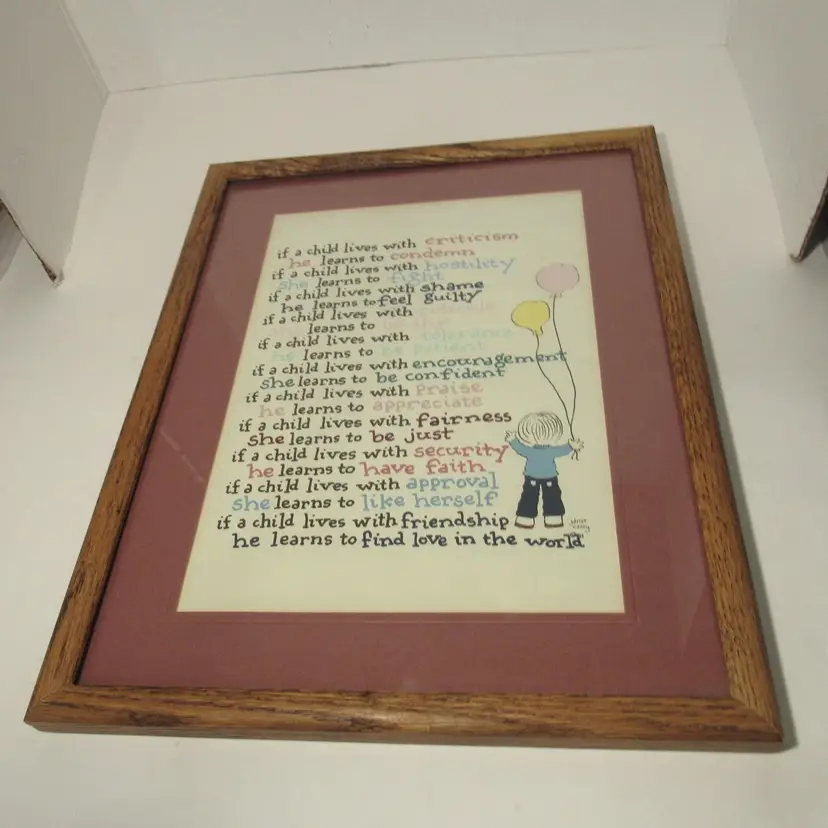 if a child lives with criticism
he learns to condemn
if a child lives with hostility
she learns to fight
if a child lives with shame
he learns to feel guilty
if a child lives with
learns to be shy
if a child lives with tolerance
he learns to be patient
if a child lives with encouragement
she learns to be confident
if a child lives with praise
he learns to appreciate
if a child lives with fairness
she learns to be just
if a child lives with security
he learns to have faith
if a child lives with approval
she learns to like herself
if a child lives with friendship
he learns to find love in the world